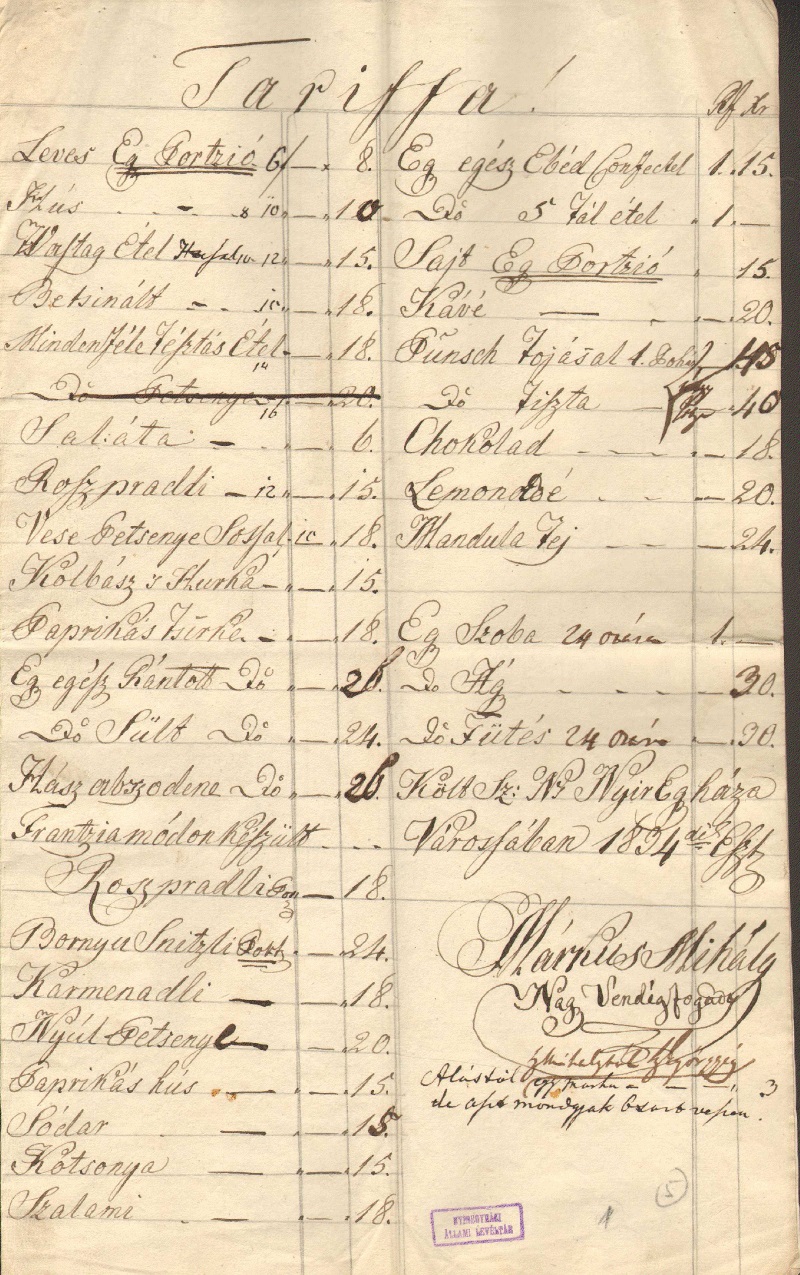 Tariffa!
Rf Xr
Leves Egÿ Portzió 6/ — 8.
Hús - 8 10 — 10
Vastag Étel 12 — 15.
Betsinált - - — 18.
Mindenféle Tésztás Étel — 18.
14
Dő Petsenye — 20.
16
Saláta — 6.
Roszpradli — 12 — 15.
Vese Petsenye Sossal — 18.
Kolbász s Hurka — 15.
Paprikás Tsirke — 18.
Egÿ egész Rántott Dő — 26
Dő Sült Dő — 24.
Hász abszodene Dő — 26
Frantzia módon készült - - -
Roszpradli — 18.
Bornyu Snitzli Port — 24.
Karmenadli — 18.
Nyúl Petsenye — 20.
Paprikás hús — 15.
Sódar — 15.
Kotsonya — 15.
Szalami — 18.
Egÿ egész Ebéd Confectel 1. 15.
Dő 5 Tál étel 1. —
Sajt Egÿ Portzió 15
Kávé — 20.
Punsch Tojásal 1. 45
Dő Tiszta — 40
Chokolad — 18.
Lemonadé — 20.
Mandula Tej — 24.
Egÿ Szoba 24 orára 1. —
Dő Ágÿ — 30.
Dő Fűtés 24 orára — 30.
Költ Sz: Nŋ Nyir Egÿháza
Városában 1834 dik Eszt
Márkus Mihály
Nagÿ Vendégfogadós
Alástól egy marha — 3
de azt mondgyak
5
1
NYÍREGYHÁZI
ÁLLAMI LEVÉLTÁR